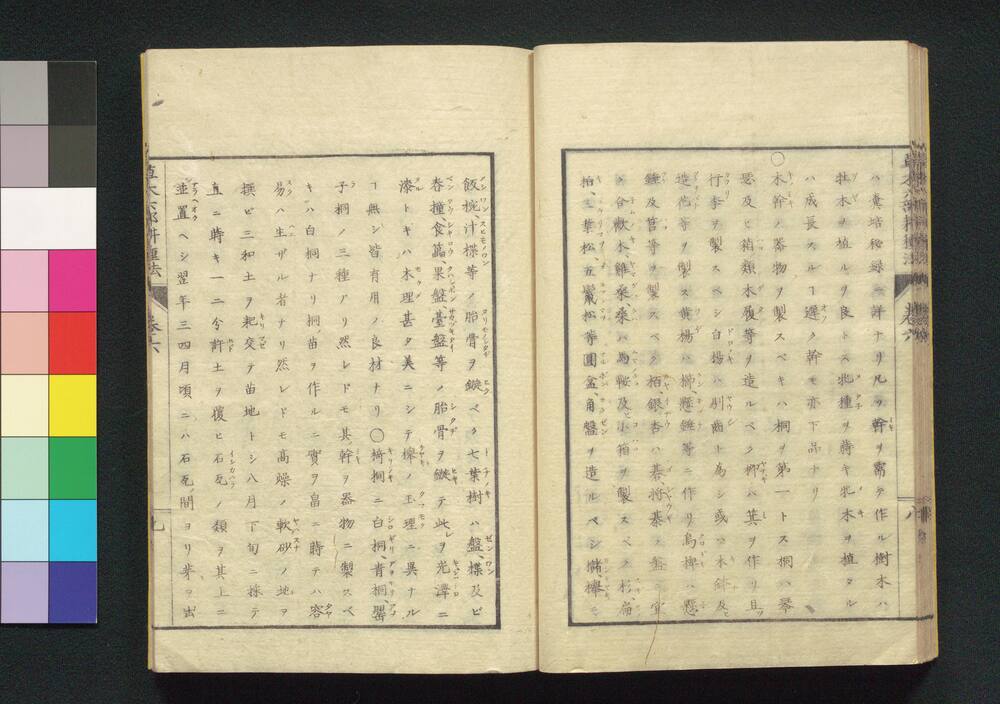 ハ糞培秘録ニ詳ナリ凡ソ幹ヲ需テ作ル樹木ハ
牡木ヲ植ルヲ良トス牝種ヲ蒔キ牝木ヲ植タル
ハ成長スルヿ遅ク幹モ亦下品ナリ
○木幹ノ器物ヲ製スベキハ桐ヲ第一トス桐ハ琴
瑟及ヒ箱類木履等ヲ造ルベク柳ハ箕ヲ作リ且
行李ヲ製スベシ白楊ハ剔齒ト為シ或ハ木鉢及
造花等ヲ製ス黄楊ハ櫛、懸錘等ニ作リ烏樟ハ懸
錘及筥等ヲ製スベク栢、銀杏ハ碁、將棊ノ盤ニ宜
合歓木、雞桑、桑ハ馬鞍及小箱ヲ製スベク杉、扁
柏、三葉松、五鬣松等圓盆、角盤ヲ造ルベシ櫧、櫸モ
飯椀、汁楪等ノ胎骨ヲ鏇ベク七葉樹ハ盤、楪及ビ
舂、撞、食籮、果盤、臺盤等ノ胎骨ヲ鏇テ此ヲ光澤ニ
漆トキハ木理甚タ美ニシテ櫸ノ玉理ニ異ナル
ヿ無シ皆有用ノ良材ナリ○椅桐ニ白桐、青桐、罌
子桐ノ三種アリ然レドモ其幹ヲ器物ニ製スベ
キハ白桐ナリ桐苗ヲ作ルニ實ヲ畠ニ蒔テハ容
易ハ生ザル者ナリ然レドモ高燥ノ軟砂ノ地ヲ
撰ビ三和土ヲ耙交テ苗地トシ八月下旬ニ採テ
直ニ時キ一二分許土ヲ覆ヒ石瓦ノ類ヲ其上ニ
並置ベシ翌年三四月頃ニハ石瓦間ヨリ芽ヲ出
草木六部耕種法
巻六
八
九